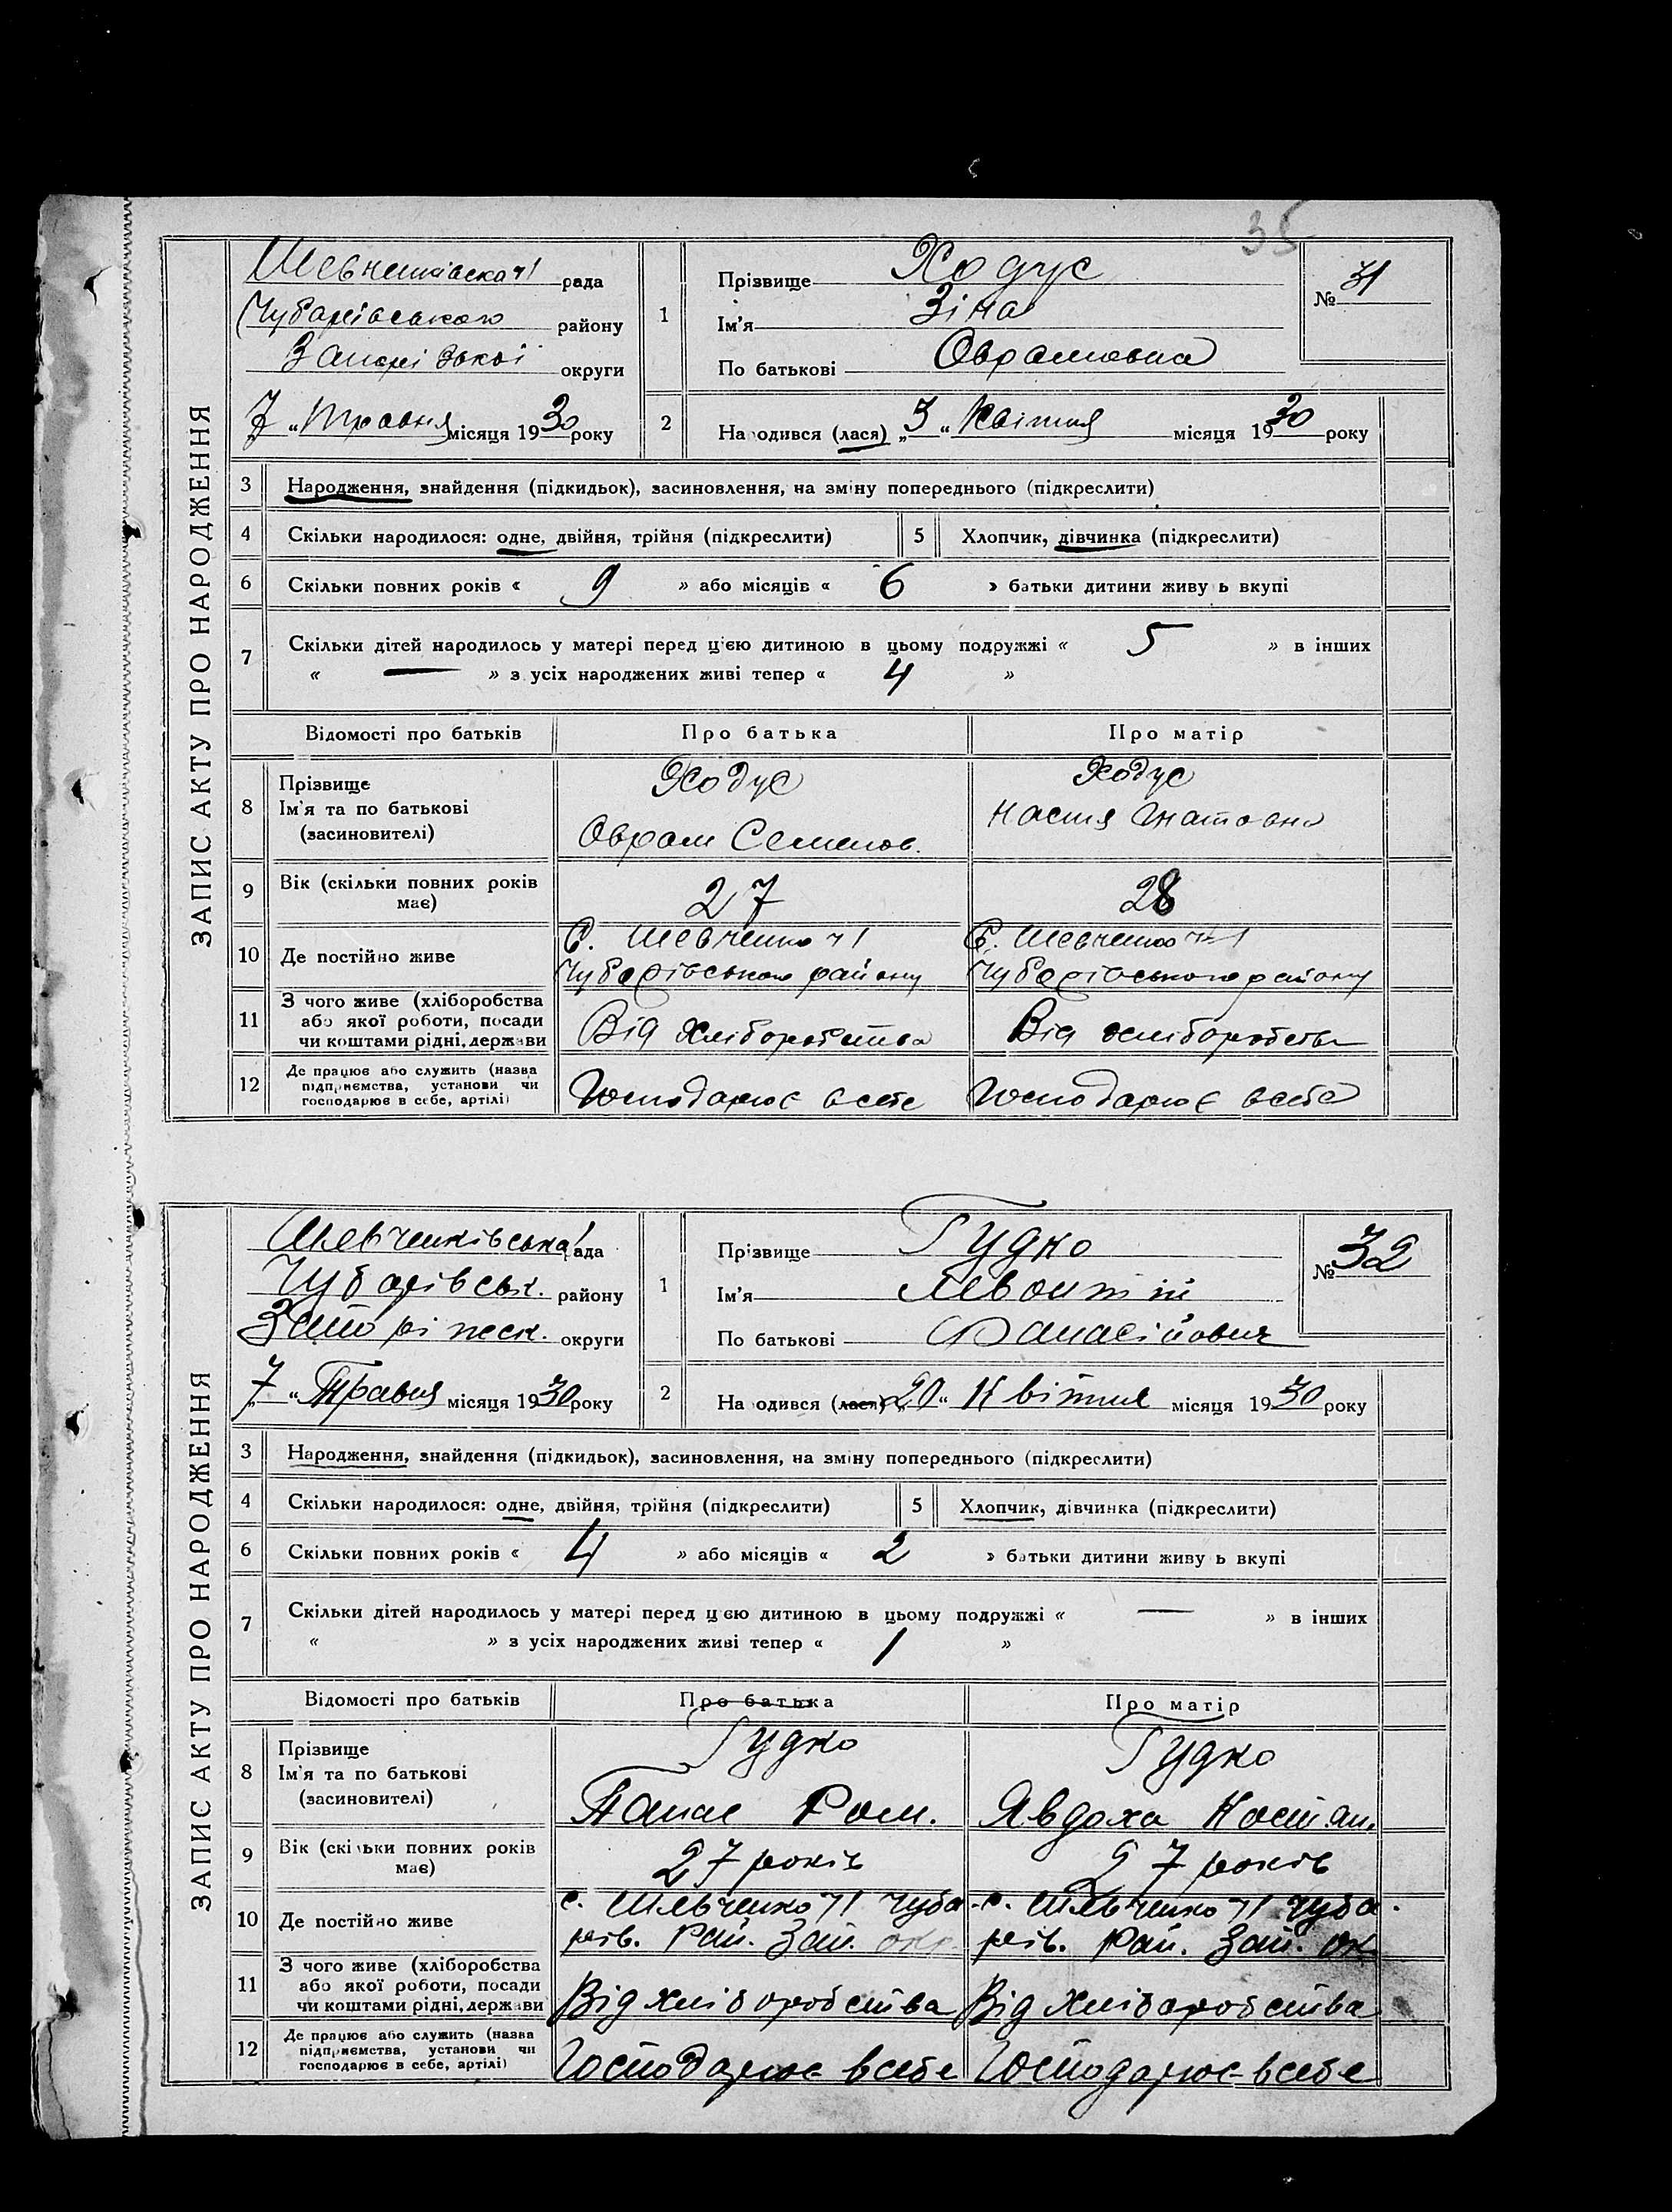 35
ЗАПИС АКТУ ПРО НАРОДЖЕННЯ
Шевченківська ч1 рада
Чубарівського району
Запорізької округи
„7“ Травня місяця 1930 року
1
Прізвище Ходус
Ім'я Зіна
По батькові Оврамовна
№ 31
2
Народився (лася) „3“ Квітня місяця 1930 року
3 Народження, знайдення (підкидьок), засиновлення, на зміну попереднього (підкреслити)
4 Скільки народилося: одне, двійня, трійня (підкреслити) 5 Хлопчик, дівчинка (підкреслити)
6 Скільки повних років « 9 » або місяців « 6 » батьки дитини живу ь вкупі
7 Скільки дітей народилось у матері перед цією дитиною в цьому подружжі « 5 » в інших
« — » з усіх народжених живі тепер « 4 »
Відомості про батьків Про батька Про матір
8 Прізвище
Ім'я та по батькові
(засиновителі)
Ходус
Оврам Семенов.
Ходус
Настя Гнатовна
9 Вік (скільки повних років
має)
27
28
10 Де постійно живе
С. Шевченко ч1
Чубарівського району
С. Шевченко ч1
Чубарівського району
11 З чого живе (хліборобства
або якої роботи, посади
чи коштами рідні, держави
Від хліборобства
Від хліборобства
12 Де працює або служить (назва
підприємства, установи чи
господарює в себе, артілі)
Господарює в себе
Господарює в себе
ЗАПИС АКТУ ПРО НАРОДЖЕННЯ
Шевченківська рада
Чубарівськ. району
Запоріжск. округи
„7“ Травня місяця 1930 року
1
Прізвище Гудко
Ім'я Левонтій
По батькові Панасійович
№ 32
2
На одився (лася) „20“ Квітня місяця 1930 року
3 Народження, знайдення (підкидьок), засиновлення, на зміну попереднього (підкреслити)
4 Скільки народилося: одне, двійня, трійня (підкреслити) 5 Хлопчик, дівчинка (підкреслити)
6 Скільки повних років « 4 » або місяців « 2 » батьки дитини живу ь вкупі
7 Скільки дітей народилось у матері перед цією дитиною в цьому подружжі « — » в інших
« » з усіх народжених живі тепер « 1 »
Відомості про батьків Про батька Про матір
8 Прізвище
Ім'я та по батькові
(засиновителі)
Гудко
Панас Ром.
Гудко
Явдоха Костян.
9 Вік (скільки повних років
має)
27 років
27 років
10 Де постійно живе
с. Шевченко ч1 Чуба-
рів. Рай. Зап. окр.
с. Шевченко ч1 Чуба-
рів. Рай. Зап. ок.
11 З чого живе (хліборобства
або якої роботи, посади
чи коштами рідні, держави
Від хліборобства
Від хліборобства
12 Де працює або служить (назва
підприємства, установи чи
господарює в себе, артілі)
Господарює в себе
Господарює в себе